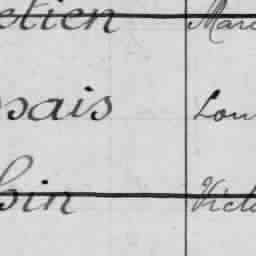 etien Marc
sais Lou
bin Victo